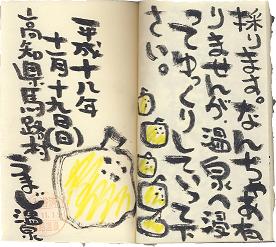 採ります。なんちゃああ
りませんが、温泉へ浸
ってゆっくりしていって下
さい。
平成十八年
十一月十九日(日)
高知県馬路村
うまじ温泉